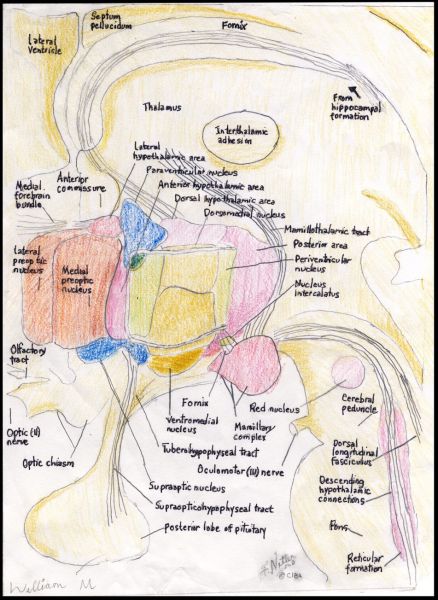 Septum
pellucidum
Fornix
Lateral
Ventricle
From
hippocampal
formation
Thalamus
Interthalamic
adhesion
Lateral
hypothalamic area
Paraventricular nucleus
Anterior
commissure
Anterior hypothalamic area
Dorsal hypothalamic area
Dorsomedial nucleus
Medial
forebrain
bundle
Mamillothalamic tract
Posterior area
Periventricular
nucleus
Nucleus
intercalatus
Lateral
preoptic
nucleus
Medial
preoptic
nucleus
Olfactory
tract
Fornix
Red nucleus
Cerebral
peduncle
Ventromedial
nucleus
Mamillary
complex
Optic (II)
nerve
Tuberohypophyseal tract
Dorsal
longitudinal
fasciculus
Optic chiasm
Oculomotor (III) nerve
Supraoptic nucleus
Descending
hypothalamic
connections
Supraopticohypophyseal tract
Posterior lobe of pituitary
Pons
Reticular
formation
© CIBA
William M